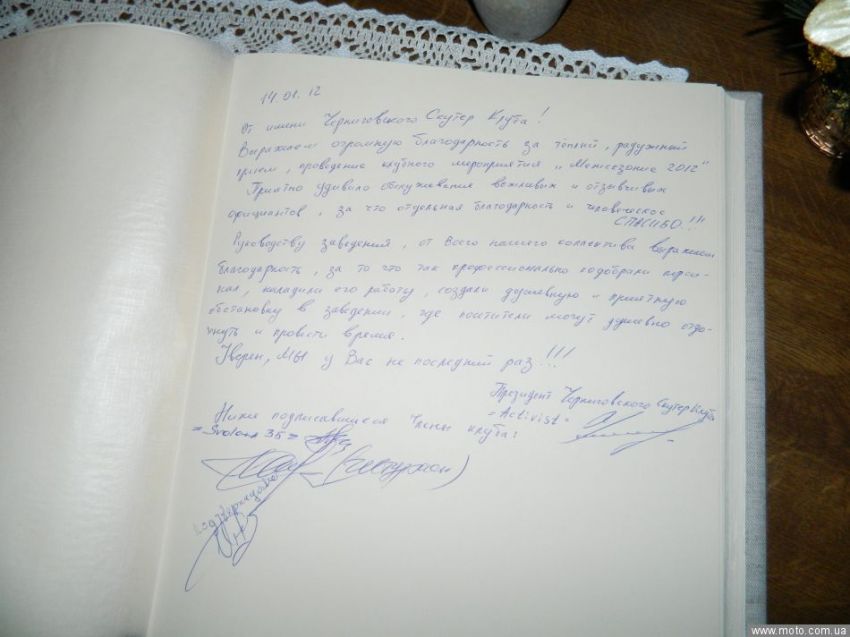 14.01.12
От имени Черниговского Скутер Клуба!
Выражаем огромную благодарность за теплый, радужный
прием, проведение клубного мероприятия „Межсезоние 2012"
Приятно удивило обслуживания вежливых и отзывчивых
официантов, за что отдельная благодарность и человеческое
СПАСИБО!!!
Руководству заведения, от всего нашего коллектива выражаем
благодарность, за то что так профессионально подобрали персо-
нал, наладили его работу, создали душевную и приятную
обстановку в заведении, где посетители могут душевно отдо-
хнуть и провести время.
Уверен, мы у Вас не последний раз!!!
Президент Черниговского Скутер Клуба
"Activist"
Ниже подписавшиеся члены клуба:
35
www.moto.com.ua